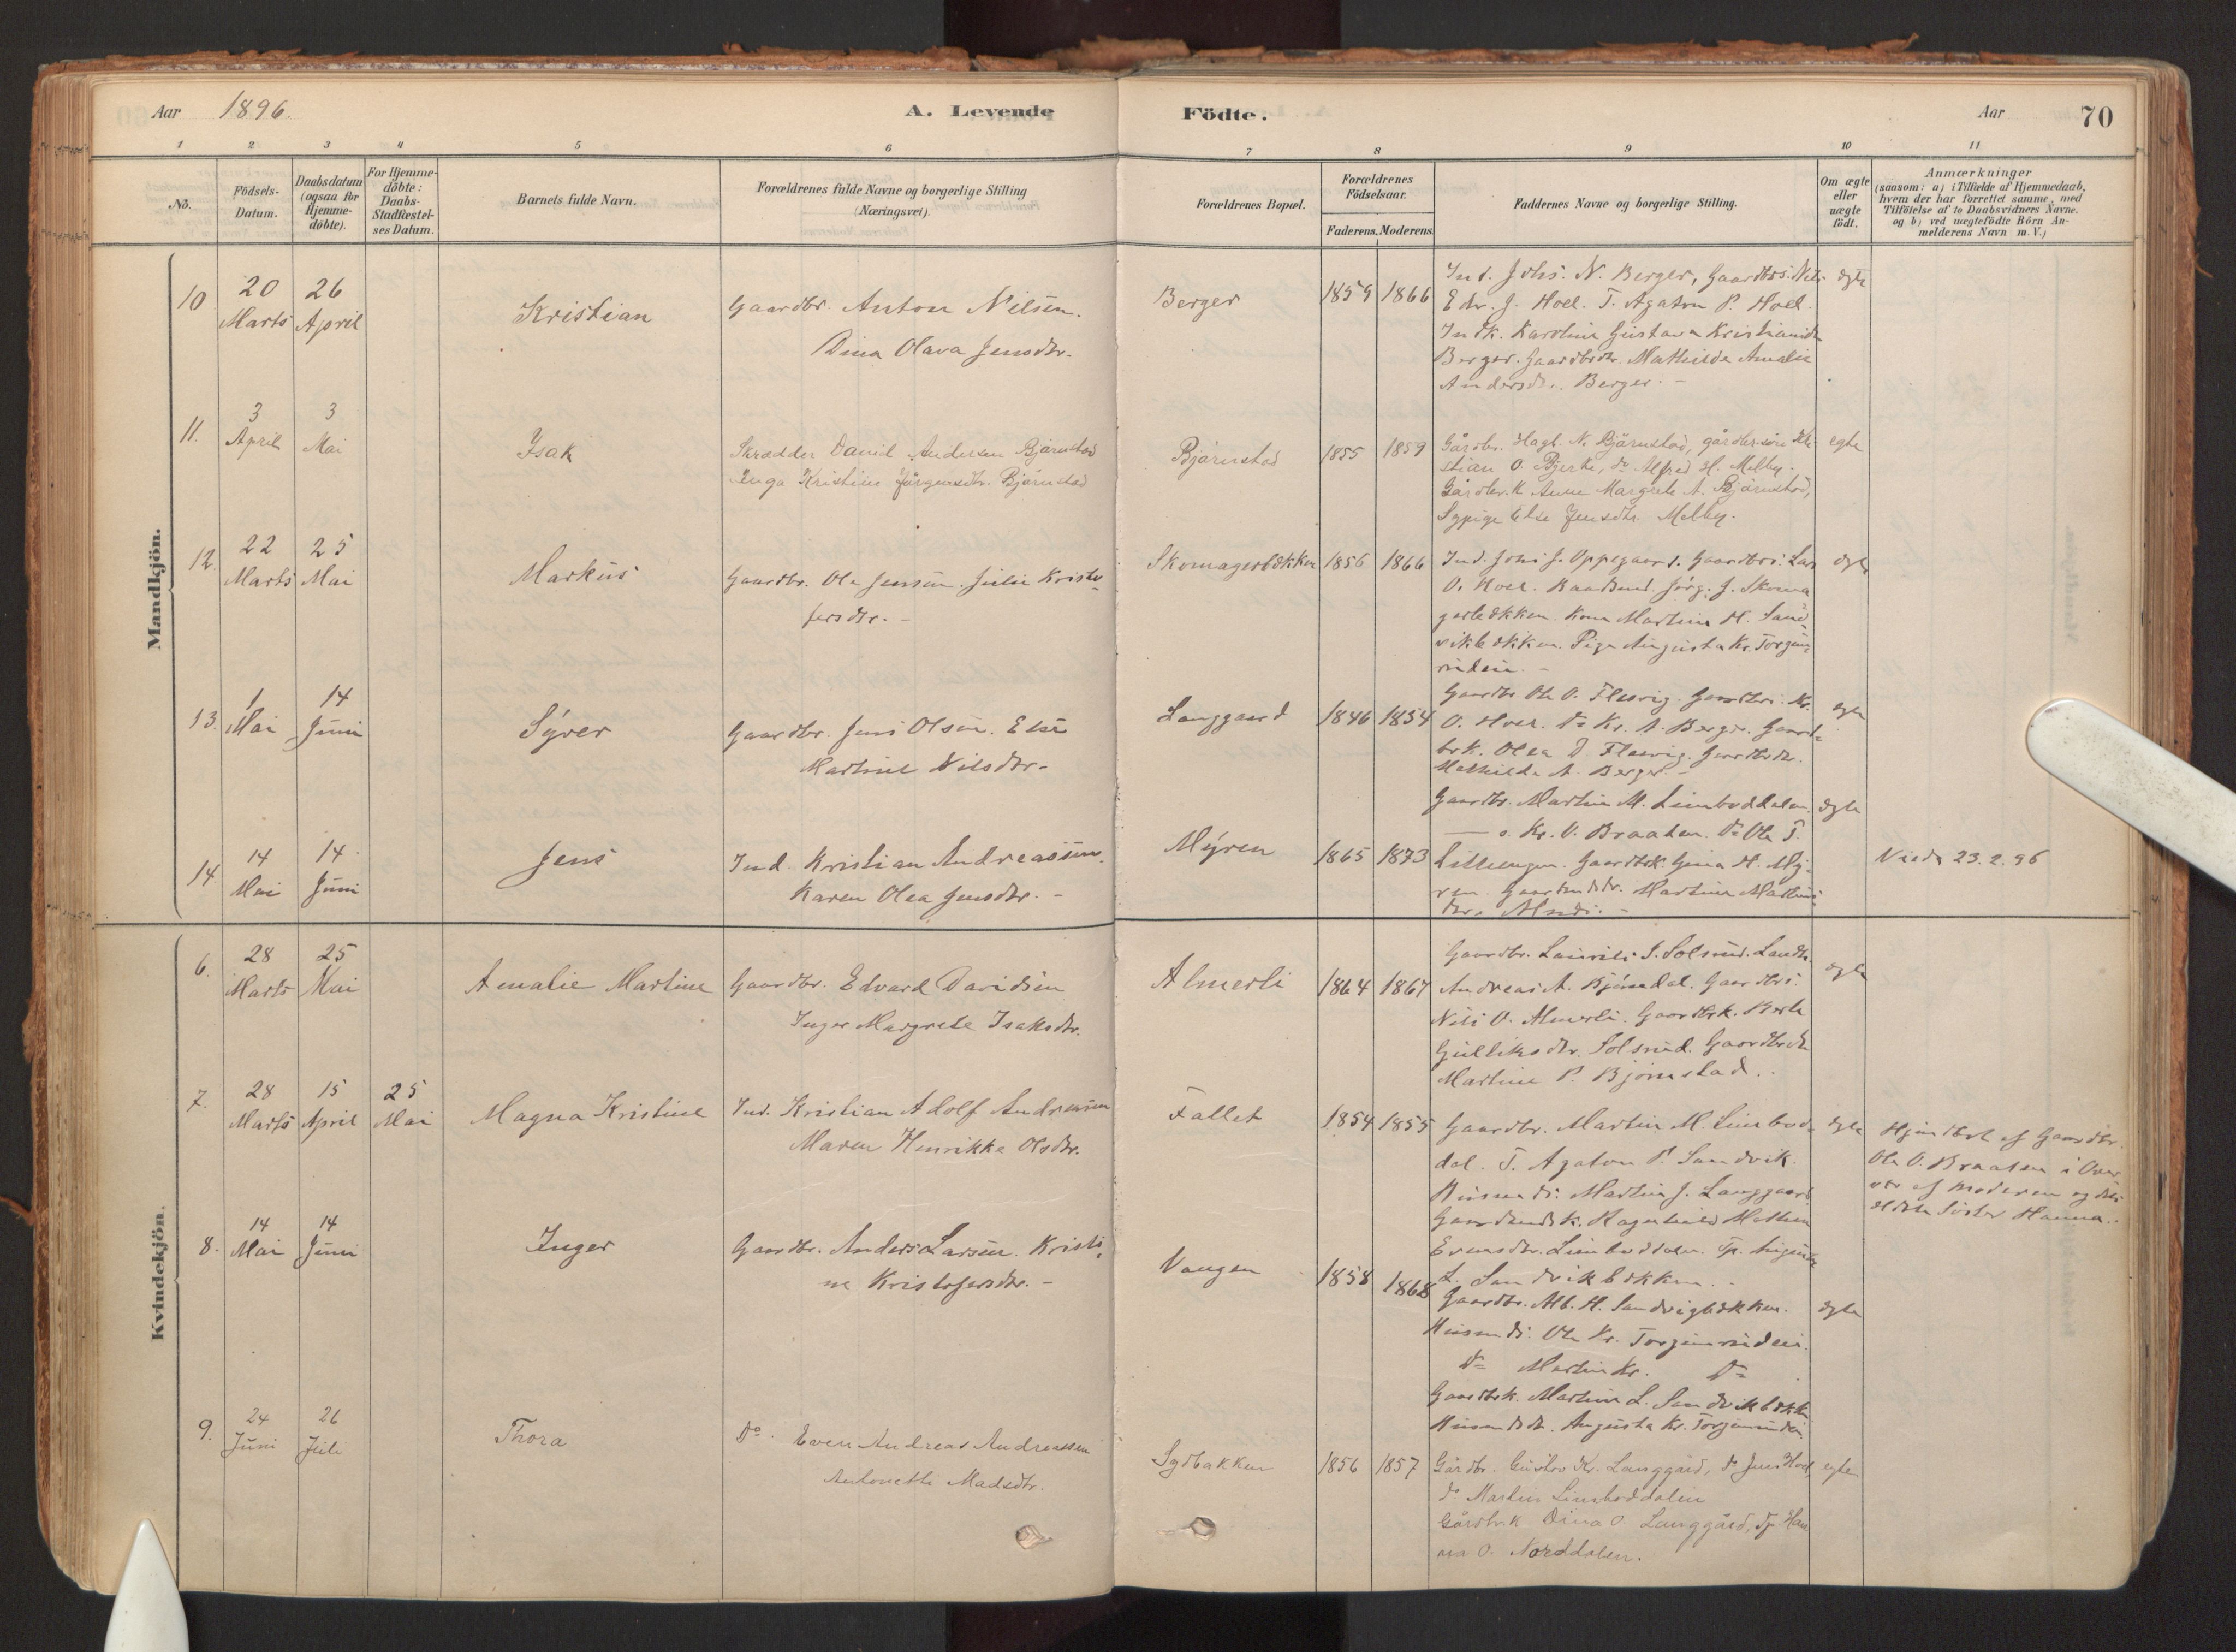 Aar 1896.
A. Levende
Födte.
Aar
70
1 2 3 4 5 6 7 8 9 10 11
No.
Födsels-
Datum.
Daabsdatum
(ogsaa for
Hjemme-
döbte).
For Hjemme-
döbte:
Daabs-
Stadfæstel-
ses Datum.
Barnets fulde Navn.
Forældrenes fulde Navne og borgerlige Stilling
(Næringsvei).
Forældrenes Bopæl.
Forældrenes
Födselsaar.
Faderens. Moderens.
Faddernes Navne og borgerlige Stilling.
Om ægte
eller
uægte
födt.
Anmærkninger
(saasom: a) i Tilfælde af Hjemmedaab,
hvem der har forrettet samme, med
Tilföielse af to Daabsvidners Navne.
og b) ved uægtefödte Börn An-
melderens Navn m. V.)
Mandkjön.
10
20
Marts
26
April
Kristian
Gaardbr. Anton Nilsen.
Dina Olava Jensdtr.
Berger
1859 1866
Ind. Johs. N. Berger, Gaardbrs. Nils
E. J. Hoel. T. Agaton P. Hoel.
Indk. Karoline Gustava
Berger. Gaardbrdtr. Mathilde Amalie
Andersdtr. Berger. -
ægte
11.
3
April
3
Mai
Isak
Skrædder David Andersen Bjørnstad
Inga Kristine Jørgensdtr. Bjørnstad
Bjørnstad
1855 1859
Gårdbr. Hagb. N. Bjørnstad, gårdbrsøn Kri
stian O. Bjerke, do Alfred H. Melby.
Gårdbr.k Anne Margrete A. Bjørnstad,
Sypige Else Jensdtr. Melby.
egte
12.
22
Marts
25
Mai
Markus
Gaardbr. Ole Jensen. Julie Kristo-
fersdtr. -
Skomagerbækken
1856 1866
Ind. Johs J. Oppegaard. Gaardbrs. Lars
O. Hoel. Jørg. J. Skoma
gerbækken. Kone Martine H. Sand
vikbækken. Pige Augusta Kr. Torgims
rudein. -
ægte
13.
1
Mai
14
Juni
Syver
Gaardbr. Jens Olsen. Else
Martine Nilsdtr.
Langgaard
1846 1854
Gaardbr. Ole O. Flesvig. Gaardbrs. Kr.
O. Hoel. Do Kr. A. Berger. Gaard-
brk. Olea O. Flesvig. Gaardbrdtr.
Mathilde A. Berger. -
ægte
14
14
Mai
14
Juni
Jens
Ind. Kristian Andreassen.
Karen Olea Jensdtr. -
Myren
1865 1873
Gaardbr. Martin M. Limboddalen.
s. Kr. O. Braaten. Do Ole T.
Lilleengen. Gaardbrk. Gina H. My-
ren. Martine Martins
dtr.
ægte
23.2.96
Kvindekjön.
6.
28
Marts
25
Mai
Amalie Martine
Gaardbr. Edvard Davidsen
Inger Margrete Isaksdtr.
Almerli
1864 1867
Gaardbr. Laurits J. Solsrud.
Andreas A. Bjørndal. Gaardbrs.
Nils O. Almerli. Gaardbrk. Berte
Gulliksdtr. Solsrud. Gaardbrdtr
Martine P. Bjørnstad.
ægte
7.
28
Marts
15
April
25
Mai
Magna Kristine
Ind. Kristian Adolf Andreasen
Maren Henrikke Olsdtr.
Fallet
1854 1855
Gaardbr. Martin M. Limbod-
dal. T. Agaton P. Sandvik.
Husmds. Martin J. Langgaard
Gaardmdsk. Ragnhild Mathea
Evensdtr. Limboddalen. Tp. Augusta
L. Sandvikbækken.
ægte
Hjemdbt af Gaardbr.
Ole O. Braaten i Over
vær af Moderen og
ældste Søster Hanna.
8.
14
Mai
14
Juni
Inger
Gaardbr. Anders Larsen. Kristi-
ne Kristofersdtr. -
Vangen
1858 1868
Gaardbr. Alb. H. Sandvigbækken.
Husmds. Ole Kr. Torgimsrudein.
Do Martin Kr. Do
Gaardbrk. Martine L. Sandvikbækk
Husmdsdtr. Augusta Kr. Torgimsrudein
ægte
9.
24
Juni
26
Juli
Thora
Do. Even Andreas Andreassen
Antonette Madsdtr.
Sydbakken
1856 1857
Gårdbr. Gustav Kr. Langgård, do Jens Hoel,
do Martin Limboddalen
Gårdbrk Dina O. Langgård, Tp Han
na O. Norddalen.
egte